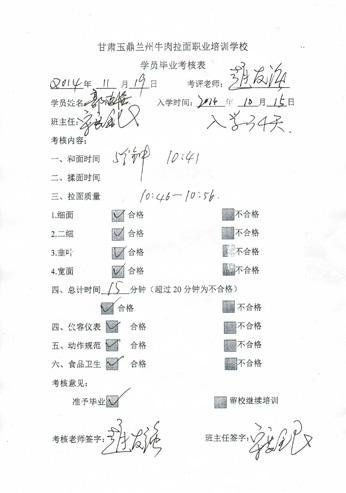 甘肃玉鼎兰州牛肉拉面职业培训学校
学员毕业考核表
2014年 11月 19日 考评老师：
学员公名： 入学时间：2014年 10月 15日
班主任： 入学34天
考核内容：
一、和面时间 5分钟 10:41
二、揉面时间
三、拉面质量 10:46—10:56.
1.细面 合格 不合格
2.二细 合格 不合格
3.韭叶 合格 不合格
4.宽面 合格 不合格
四、总计时间 15 分钟（超过20分钟为不合格）
合格 不合格
四、仪容仪表 合格 不合格
五、动作规范 合格 不合格
六、食品卫生 合格 不合格
考核意见：
准予毕业 留校继续培训
考核老师签字： 班主任签字：